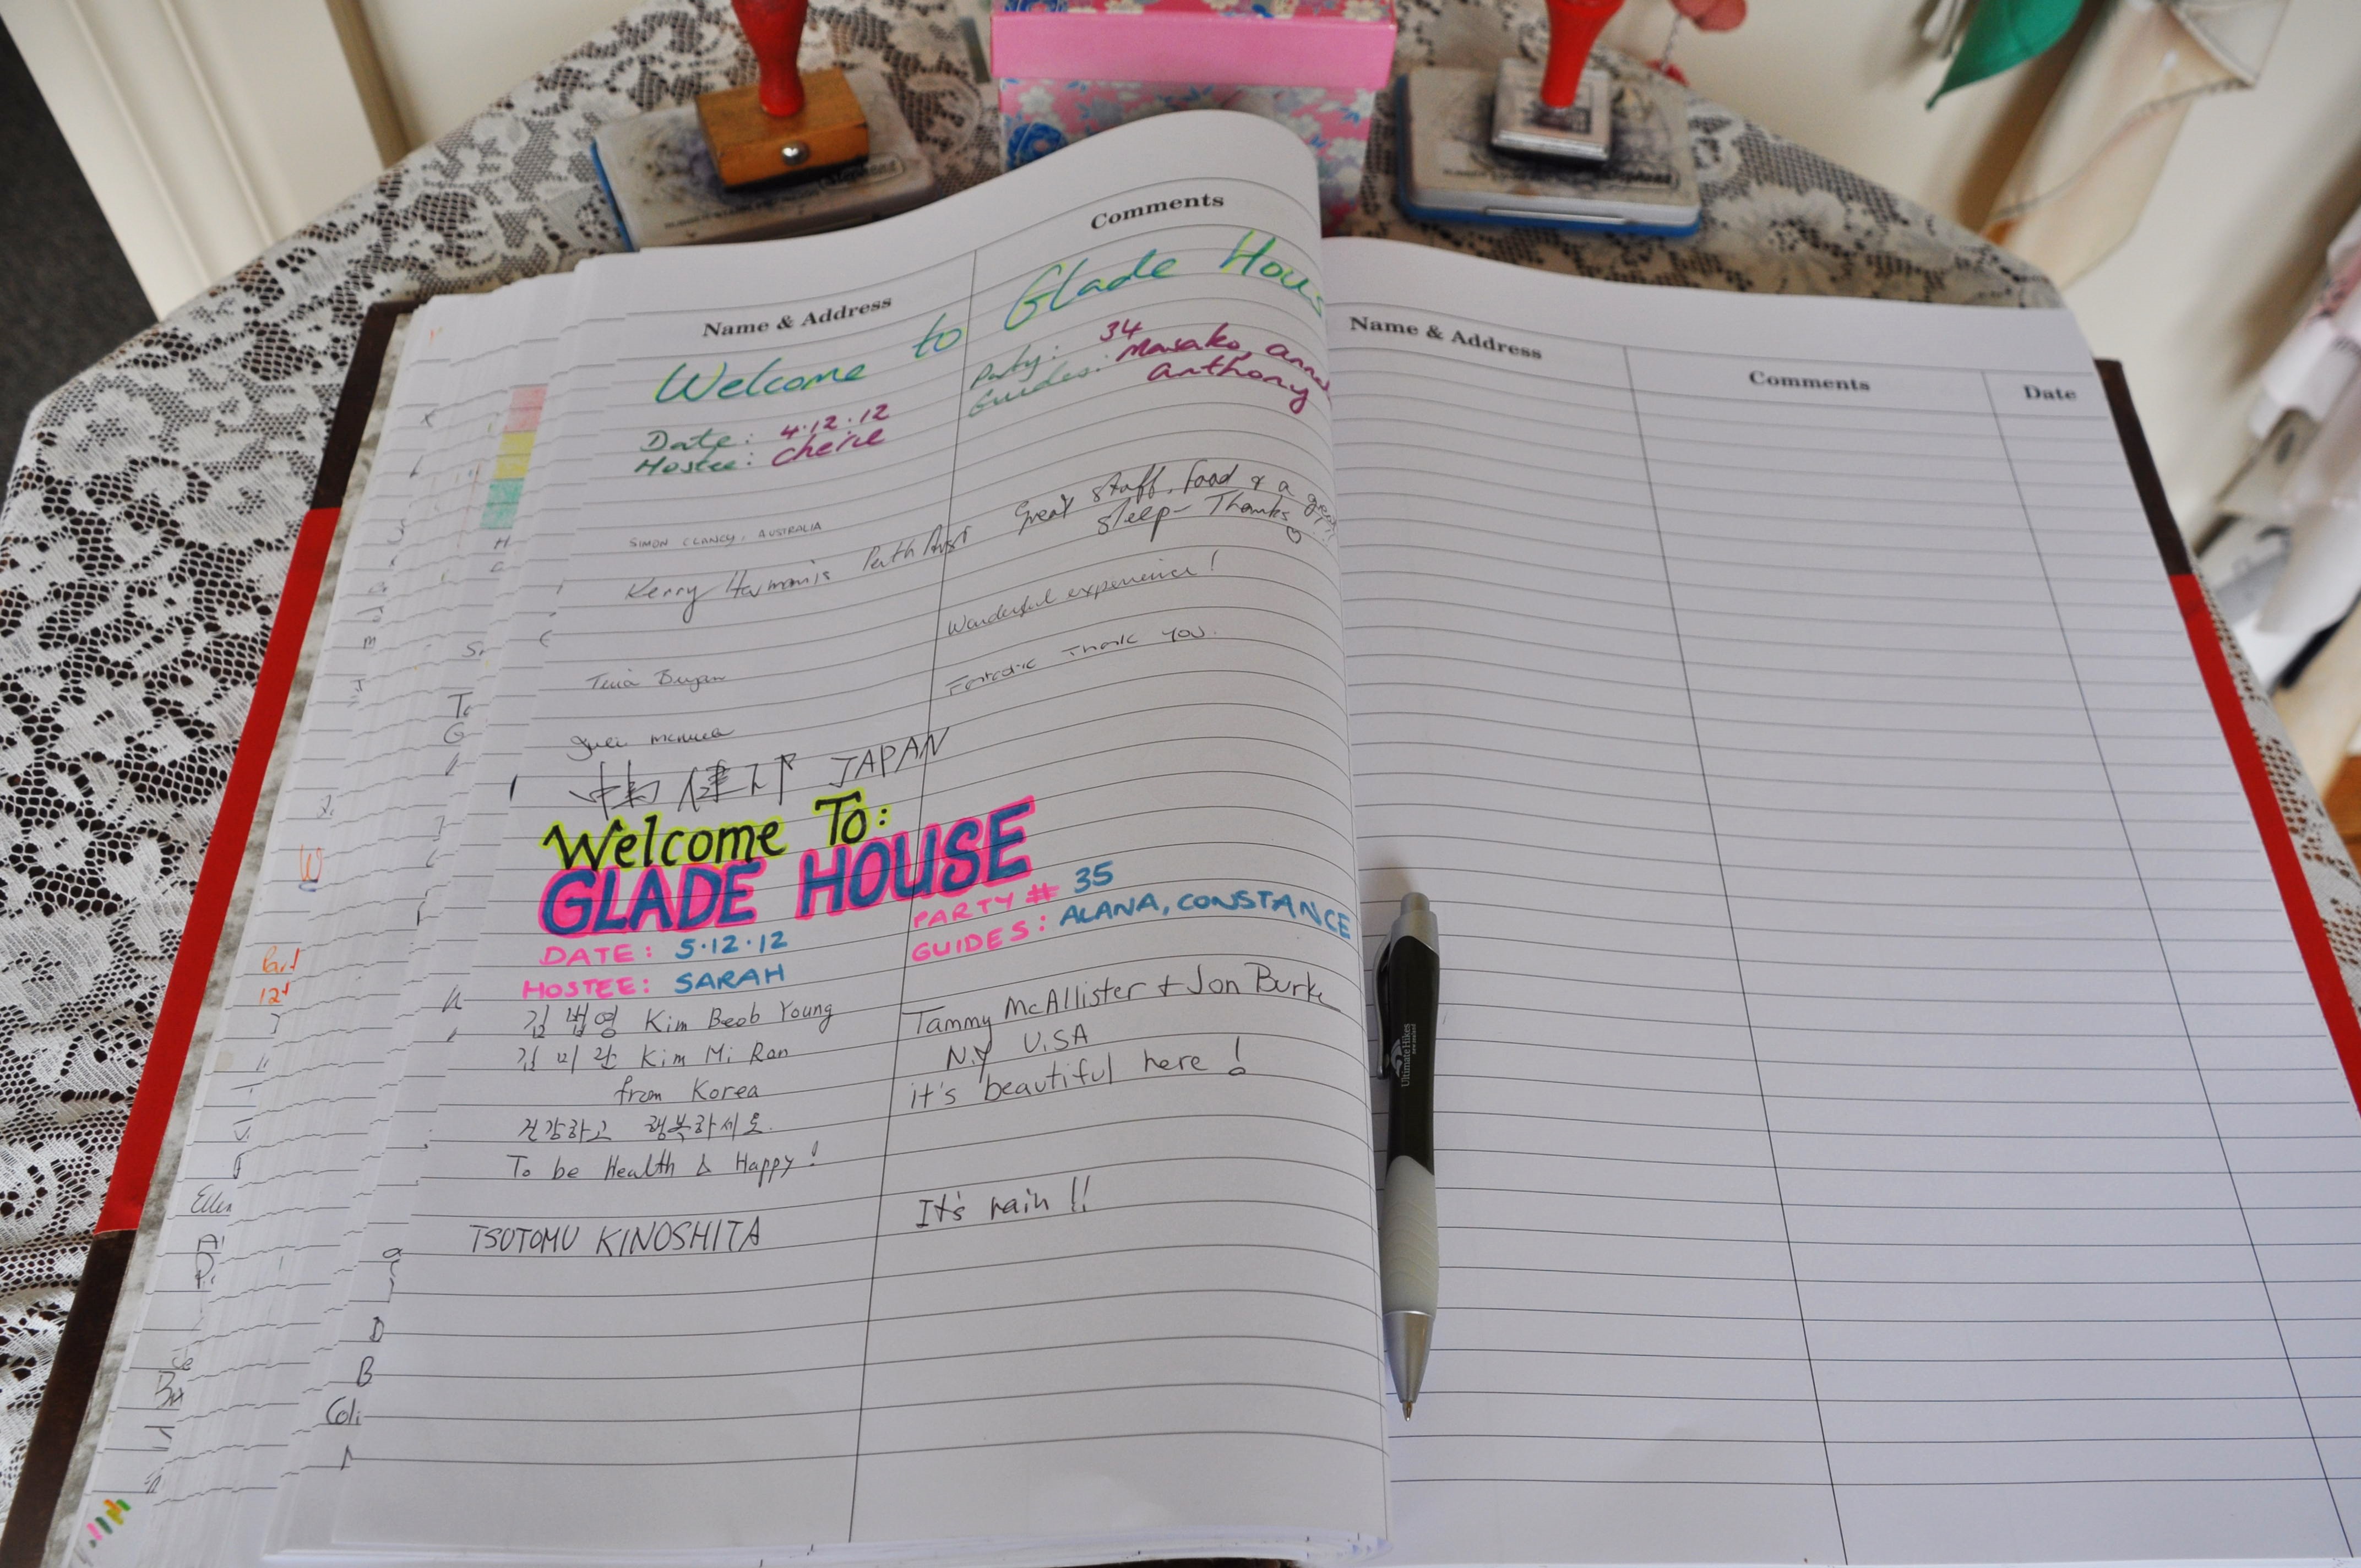 Name & Address
Comments
Welcome to Glade Hous
Date: 4.12.12
Party: 34
Hostee: Cherie
Guides: Masako, anna
anthony
SIMON CLANCY, AUSTRALIA
Kerry Perth Aust
Great staff, food & a great
sleep - Thanks
Wonderful experience!
Fantastic Thank you.
JAPAN
Welcome To:
GLADE HOUSE
DATE: 5.12.12
PARTY # 35
HOSTEE: SARAH
GUIDES: ALANA, CONSTANCE
김 범영 Kim Beob Young
김 미란 Kim Mi Ran
from Korea
건강하고 행복하세요.
To be Health & Happy!
Tammy McAllister + Jon Burke
N.Y U.S.A
it's beautiful here!
TSUTOMU KINOSHITA
It's rain!!
Name & Address
Comments
Date
Ultimate Hikes